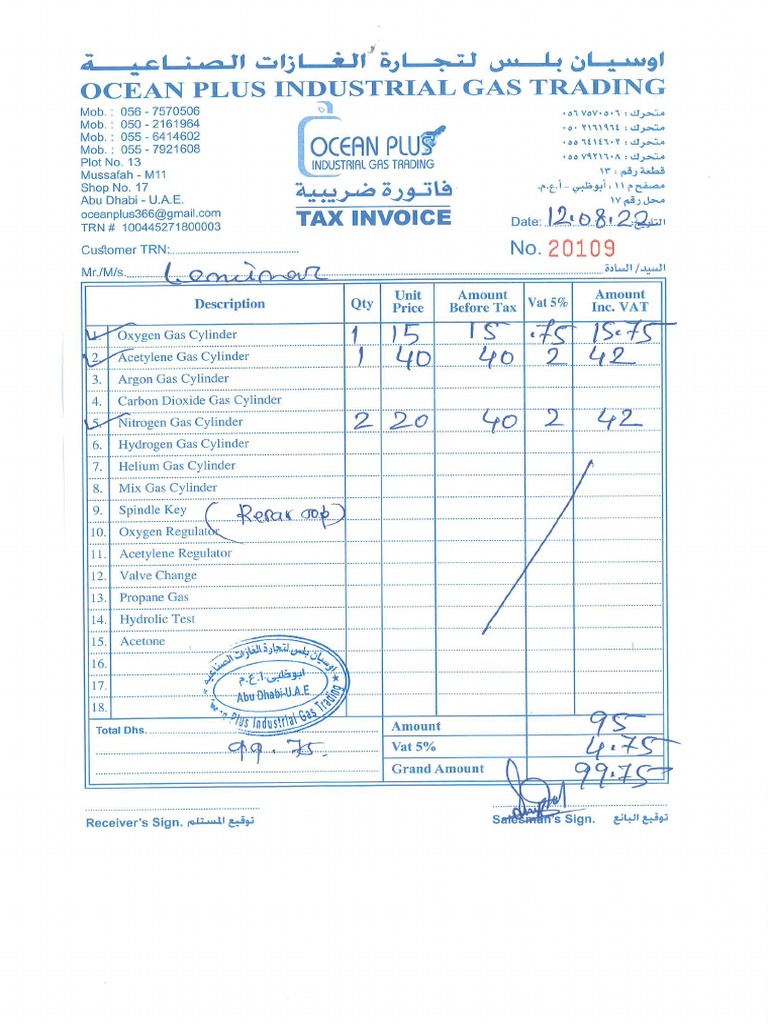 اوسيان بلس لتجارة الغازات الصناعية
OCEAN PLUS INDUSTRIAL GAS TRADING
Mob. : 056 - 7570506
Mob. : 050 - 2161964
Mob. : 055 - 6414602
Mob. : 055 - 7921608
Plot No. 13
Mussafah - M11
Shop No. 17
Abu Dhabi - U.A.E.
oceanplus366@gmail.com
TRN # 100445271800003
OCEAN PLUS
INDUSTRIAL GAS TRADING
فاتورة ضريبية
TAX INVOICE
متحرك : ٠٥٦ ٧٥٧٠٥٠٦
متحرك : ٠٥٠ ٢١٦١٩٦٤
متحرك : ٠٥٥ ٦٤١٤٦٠٢
متحرك : ٠٥٥ ٧٩٢١٦٠٨
قطعة رقم : ١٣
مصفح م ١١، أبوظبي - أ.ع.م.
محل رقم ١٧
Date: 12.08.22 التاريخ:
Customer TRN:
No. 20109
Mr./M/s. السيد/ السادة:
Description Qty Unit Price Amount Before Tax Vat 5% Amount Inc. VAT
1. Oxygen Gas Cylinder 1 15 15 .75 15.75
2. Acetylene Gas Cylinder 1 40 40 2 42
3. Argon Gas Cylinder
4. Carbon Dioxide Gas Cylinder
5. Nitrogen Gas Cylinder 2 20 40 2 42
6. Hydrogen Gas Cylinder
7. Helium Gas Cylinder
8. Mix Gas Cylinder
9. Spindle Key
10. Oxygen Regulator
11. Acetylene Regulator
12. Valve Change
13. Propane Gas
14. Hydrolic Test
15. Acetone
16.
17.
18.
اوسيان بلس لتجارة الغازات الصناعية
ابوظبي ا.ع.م
Abu Dhabi-U.A.E
Plus Industrial Gas Trading
Total Dhs. 99.75
Amount 95
Vat 5% 4.75
Grand Amount 99.75
Receiver's Sign. توقيع المستلم
Salesman's Sign. توقيع البائع